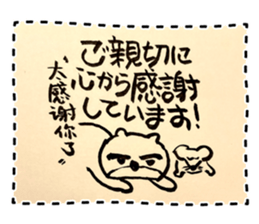 ご親切に
心から感謝
しています!
"大感谢你了"